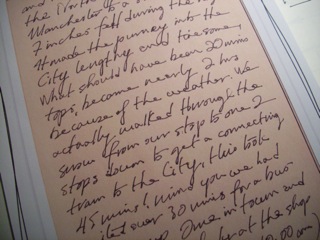 and
the North
Manchester of a
7 inches fell during the
It made the journey into the
City lengthy and tiresome,
What should have been 20 mins
tops, became nearly 2 hrs
because of the weather. We
actually walked through the
snow from our stop to one 2
stops down to get a connecting
tram to the City, this took
45 mins!, mind you we had
over 30 mins for a bus
Once in town and
at the shop
00 am)